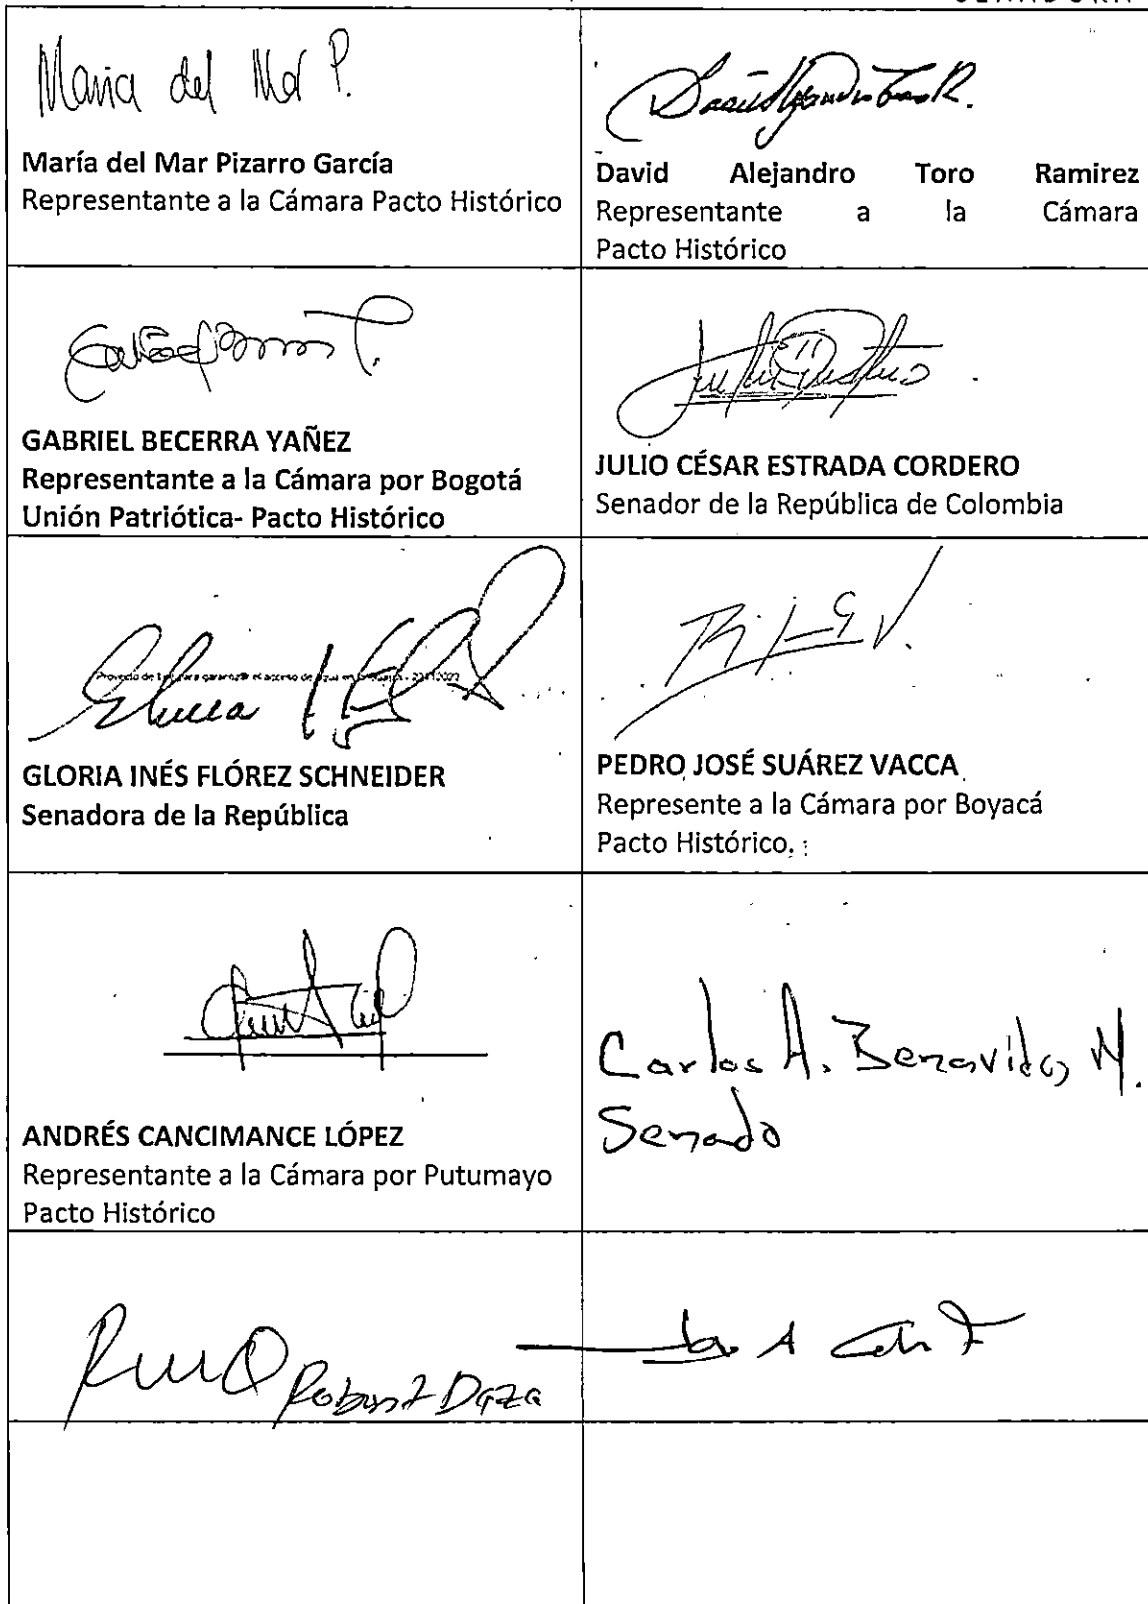 Maria del Mar P.
María del Mar Pizarro García
Representante a la Cámara Pacto Histórico
David Alejandro Toro Ramirez
Representante a la Cámara
Pacto Histórico
GABRIEL BECERRA YAÑEZ
Representante a la Cámara por Bogotá
Unión Patriótica- Pacto Histórico
JULIO CÉSAR ESTRADA CORDERO
Senador de la República de Colombia
GLORIA INÉS FLÓREZ SCHNEIDER
Senadora de la República
PEDRO JOSÉ SUÁREZ VACCA
Represente a la Cámara por Boyacá
Pacto Histórico.
ANDRÉS CANCIMANCE LÓPEZ
Representante a la Cámara por Putumayo
Pacto Histórico
Carlos A. Benavides M.
Senado
Robert Daza